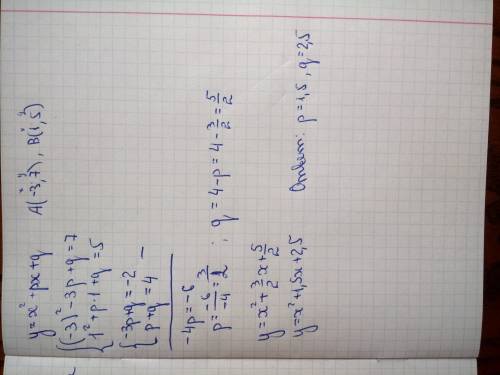 y=x²+px+q A(-3;7), B(1;5)
{(-3)²-3p+q=7
1²+p·1+q=5
{-3p+q=-2
p+q=4 -
-4p=-6
p=-6/-4=3/2 ; q=4-p=4-3/2=5/2
y=x²+3/2x+5/2
y=x²+1,5x+2,5 Ответ: p=1,5, q=2,5